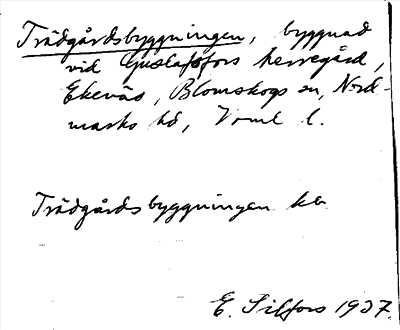 Trädgårdsbyggningen, byggnad
vid Gustafsfors herregård,
Ekenäs, Blomskogs sn, Nord-
marks hd, Verml l.
Trädgårdsbyggningen ka
E. Silfors 1937.